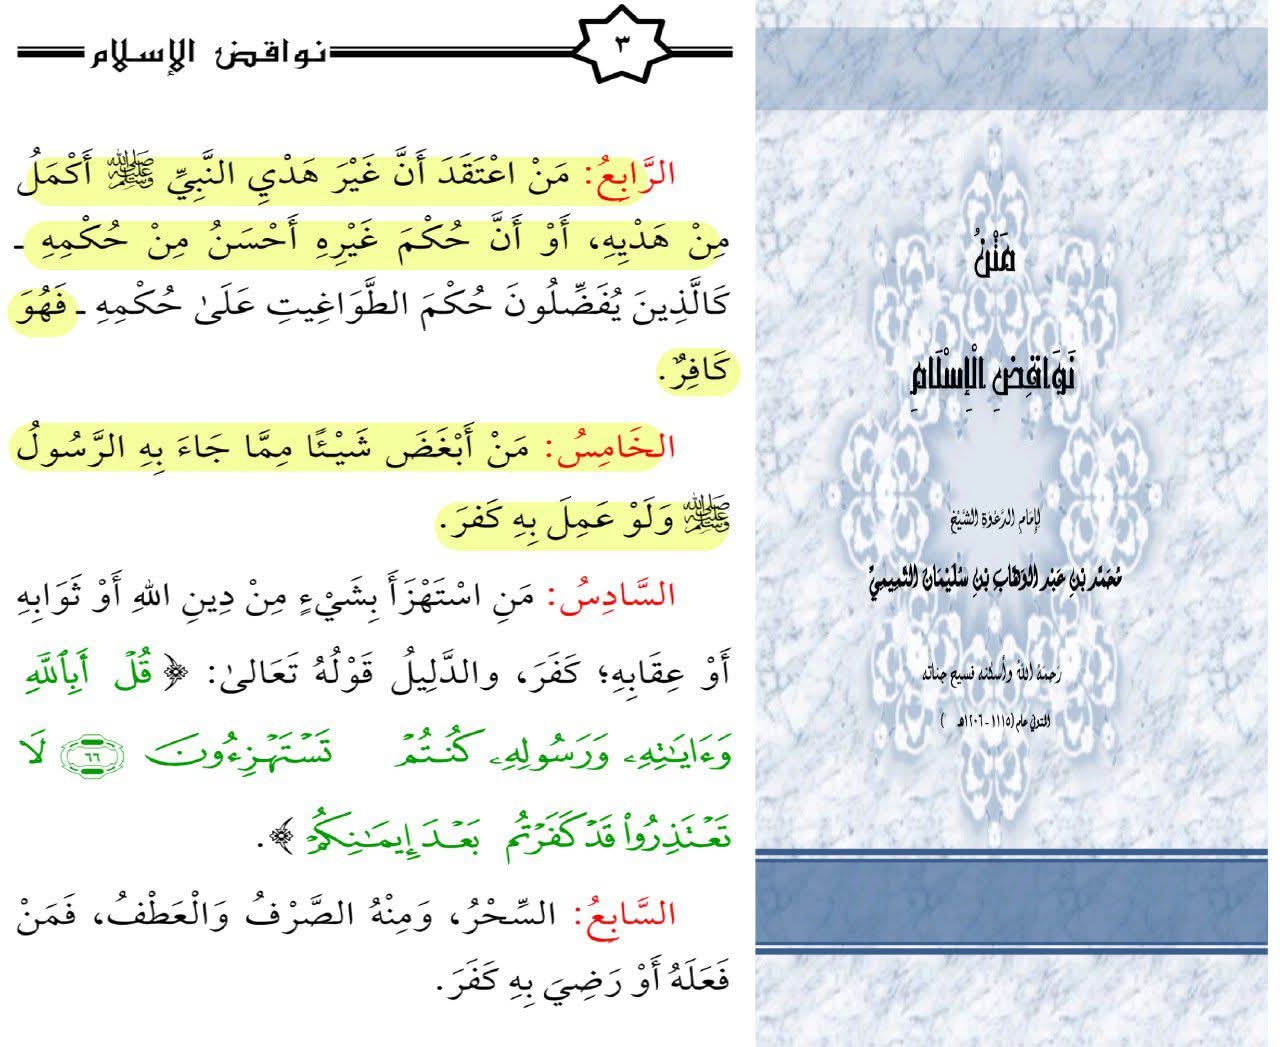 نواقض الإسلام
٣
الرَّابِعُ: مَنْ اعْتَقَدَ أَنَّ غَيْرَ هَدْيِ النَّبِيِّ ﷺ أَكْمَلُ
مِنْ هَدْيِهِ، أَوْ أَنَّ حُكْمَ غَيْرِهِ أَحْسَنُ مِنْ حُكْمِهِ ـ
كَالَّذِينَ يُفَضِّلُونَ حُكْمَ الطَّوَاغِيتِ عَلَىٰ حُكْمِهِ ـ فَهُوَ
كَافِرٌ.
الخَامِسُ: مَنْ أَبْغَضَ شَيْئًا مِمَّا جَاءَ بِهِ الرَّسُولُ
ﷺ وَلَوْ عَمِلَ بِهِ كَفَرَ.
السَّادِسُ: مَنِ اسْتَهْزَأَ بِشَيْءٍ مِنْ دِينِ اللهِ أَوْ ثَوَابِهِ
أَوْ عِقَابِهِ؛ كَفَرَ، والدَّلِيلُ قَوْلُهُ تَعَالىٰ: ﴿قُلۡ أَبِٱللَّهِ
وَءَايَٰتِهِۦ وَرَسُولِهِۦ كُنتُمۡ تَسۡتَهۡزِءُونَ ٦٦ لَا
تَعۡتَذِرُواْ قَدۡ كَفَرۡتُم بَعۡدَ إِيمَٰنِكُمۡ﴾.
السَّابِعُ: السِّحْرُ، وَمِنْهُ الصَّرْفُ وَالْعَطْفُ، فَمَنْ
فَعَلَهُ أَوْ رَضِيَ بِهِ كَفَرَ.
مَتْنُ
نَوَاقِضِ الْإِسْلَامِ
لِإمَامِ الدَّعْوَةِ الشَّيْخِ
مُحَمَّدِ بْنِ عَبْدِ الوَهَّابِ بْنِ سُلَيْمَانَ التَّمِيمِيِّ
رَحِمَهُ اللهُ وأسكنه فسيح جناته
المتوفى عام (١١١٥-١٢٠٦هـ )